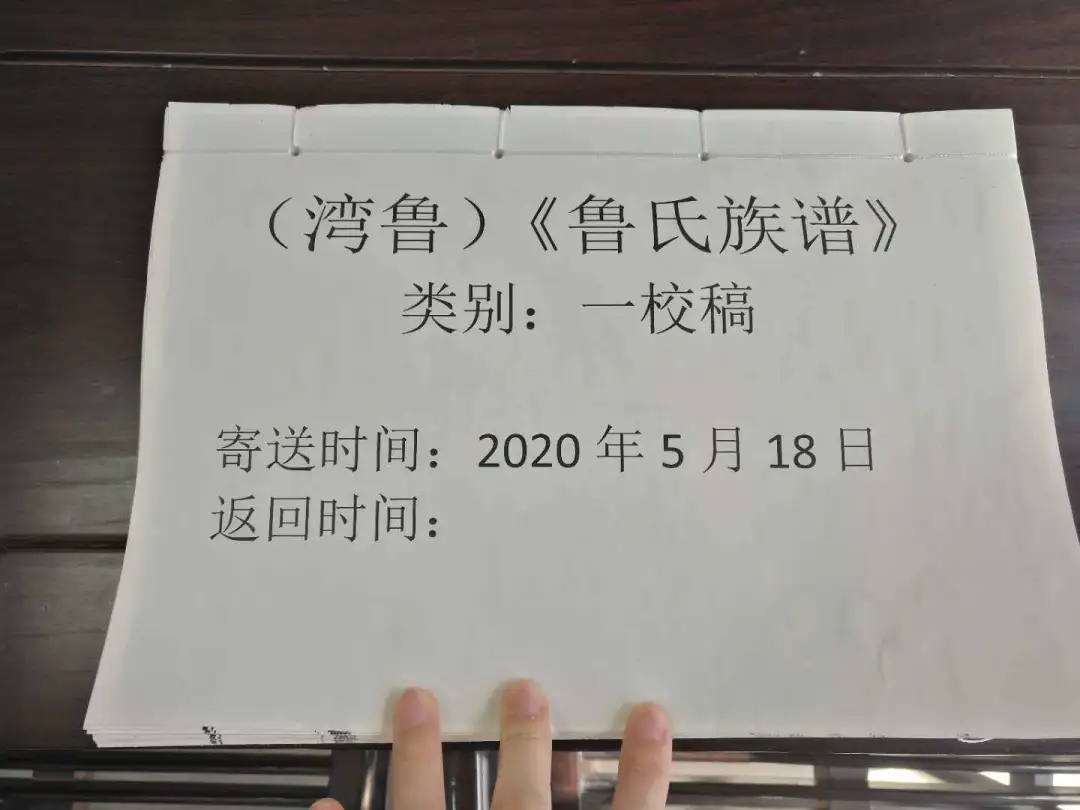 （湾鲁）《鲁氏族谱》
类别：一校稿
寄送时间：2020 年 5 月 18 日
返回时间：